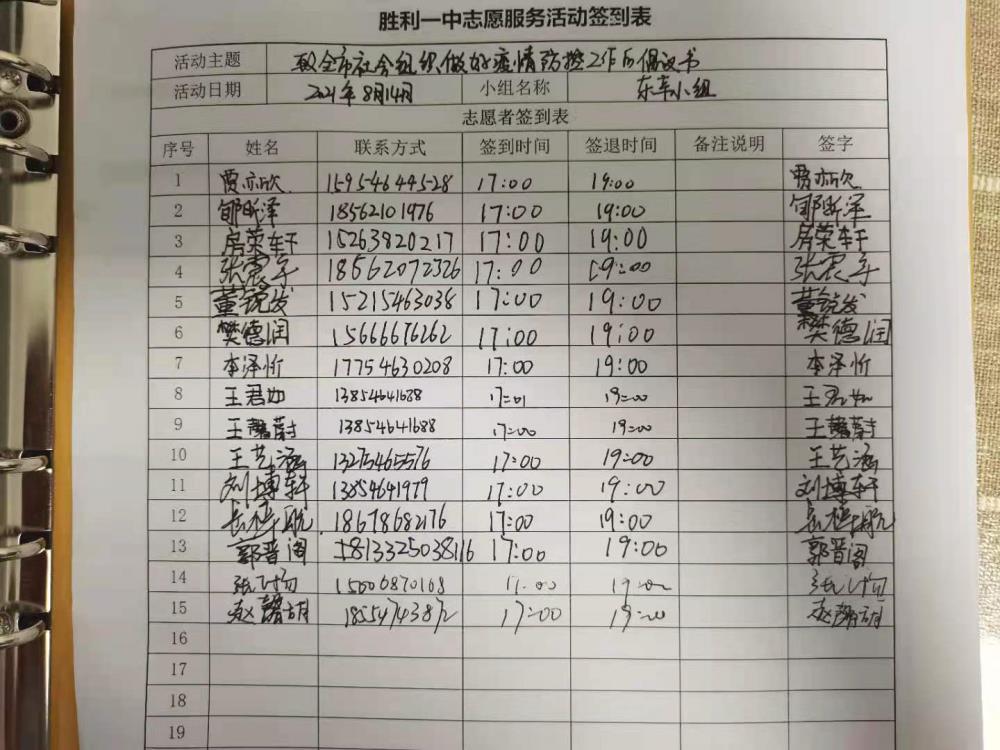 胜利一中志愿服务活动签到表
活动主题 致全市社会组织做好疫情防控工作的倡议书
活动日期 2021年8月14日 小组名称 东辛小组
志愿者签到表
序号 姓名 联系方式 签到时间 签退时间 备注说明 签字
1 贾亦欣 15954644528 17:00 19:00 贾亦欣
2 郇昕泽 18562101976 17:00 19:00 郇昕泽
3 房荣轩 15263820217 17:00 19:00 房荣轩
4 张震宇 18562072326 17:00 19:00 张震宇
5 董锐发 15215463038 17:00 19:00 董锐发
6 樊德润 15666676262 17:00 19:00 樊德润
7 李泽忻 17754630208 17:00 19:00 李泽忻
8 王君如 17:01 19:00 王君如
9 王馨蔚 13854641688 17:00 19:00 王馨蔚
10 王艺涵 13275465576 17:00 19:00 王艺涵
11 刘博轩 17:00 19:00 刘博轩
12 18678682176 17:00 19:00
13 郭晋阁 17:00 19:00 郭晋阁
14 17:00 19:00
15 赵 17:00 19:00 赵
16
17
18
19